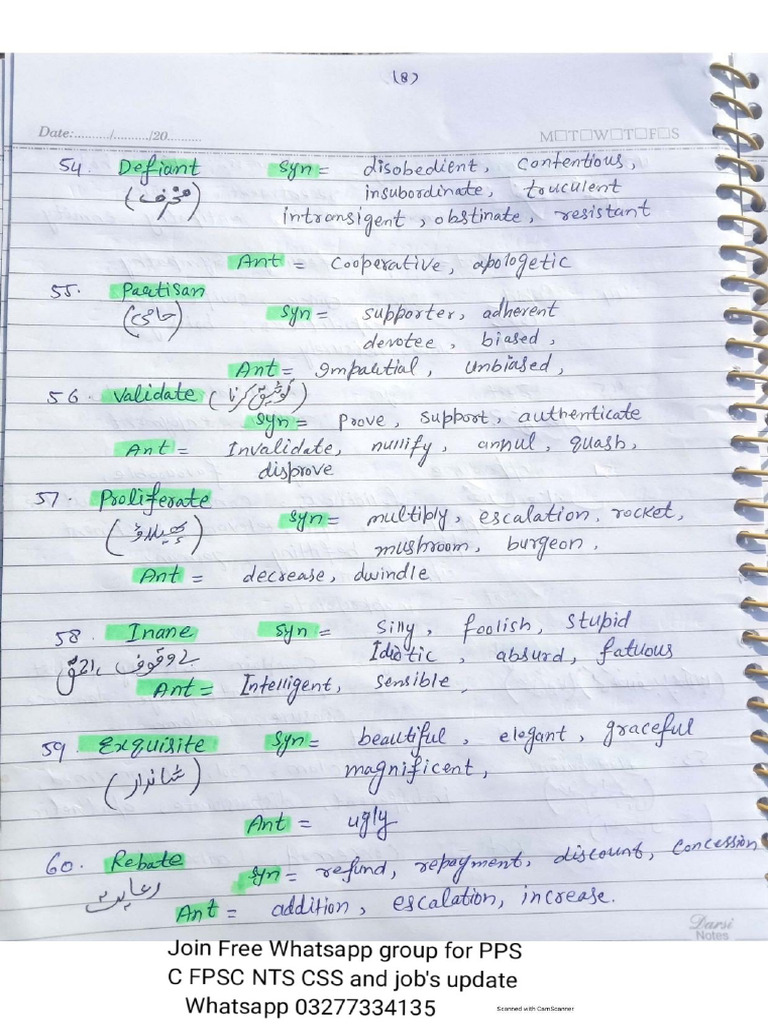 (8)
Date:........./........./20..........
M□T□W□T□F□S
54. Defiant Syn = disobedient, contentious,
(منحرف) insubordinate, truculent
intransigent, obstinate, resistant
Ant = Cooperative, apologetic
55. Partisan
(حامی) Syn = supporter, adherent
devotee, biased,
Ant = Impartial, Unbiased,
56. Validate (توثیق کرنا)
Syn = Prove, Support, authenticate
Ant = Invalidate, nullify, annul, quash,
disprove
57. Proliferate
(پھیلاؤ) Syn = multiply, escalation, rocket,
mushroom, burgeon,
Ant = decrease, dwindle
58. Inane Syn = Silly, foolish, Stupid
بے وقوف، احمق Idiotic, absurd, fatuous
Ant = Intelligent, sensible,
59. Exquisite Syn = beautiful, elegant, graceful
(شاندار) magnificent,
Ant = ugly
60. Rebate Syn = refund, repayment, discount, concession
رعایت Ant = addition, escalation, increase.
Darsi
Notes
Join Free Whatsapp group for PPS
C FPSC NTS CSS and job's update
Whatsapp 03277334135
Scanned with CamScanner